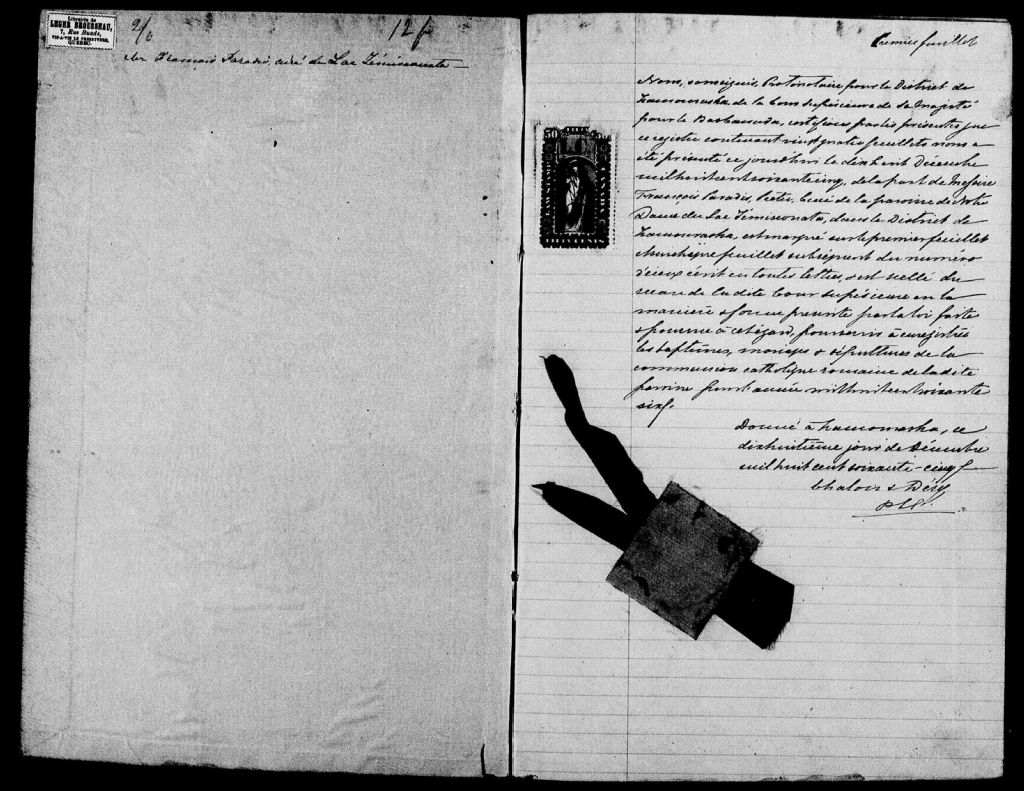 Librairie de
LEGER BROUSSEAU,
7, Rue Buade,
VIS-A-VIS LE PRESBYTERE,
QUEBEC.
2/6
12/
Mr François Paradis, curé du Lac Témisconata
Premier feuillet
Nous, soussignés, Protonotaire pour le District de
Kamouraska de la Cour Supérieure de Sa Majesté
pour le Bas Canada, certifions par les présentes que
ce registre contenant vingt quatre feuillets nous a
été présenté ce jourd'hui le dix huit Décembre
mil huit cent soixante cinq, de la part de Messire
François Paradis, Ptre, Curé de la paroisse de Notre
Dame du Lac Témisconata, dans le District de
Kamouraska, est marqué sur le premier feuillet
et sur chaque feuillet subséquent du numéro
d'iceux écrit en toutes lettres, & est scellé du
sceau de la dite Cour Supérieure en la
manière & forme prescrite par la loi faite
& pourvue à cet égard, pour servir à enregistrer
les baptêmes, mariages & sépultures de la
communion catholique romaine de la dite
paroisse pour l'année mil huit cent soixante
six.
Donné à Kamouraska, ce
dixhuitième jour de Décembre
mil huit cent soixante-cinq
Chalou &
PCS.
50
50
FIFTY CENTS